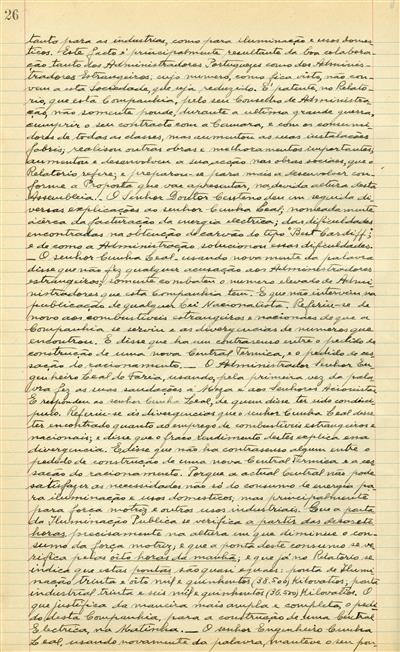 26
tanto para as industrias, como para iluminação e usos domes-
ticos. Este facto é principalmente resultante da boa colabora-
ção tanto dos Administradores Portugueses como dos Adminis-
tradores Estrangeiros, cujo numero, como fica visto, não con-
vem a esta Sociedade, que seja reduzido. É patente, no Relato-
rio, que esta Companhia, pelo seu Conselho de Administra-
ção, não somente ponde, durante a ultima grande guerra,
cumprir o seu contrato com a Camara, e com os consumi-
dores de todas as classes, mas aumentou as suas instalações
fabris; realisou outras obras e melhoramentos importantes;
aumentou e desenvolveu a sua acção nas obras sociaes, que o
Relatorio refere; e preparou-se para mais a desenvolver con-
forme a Proposta que vae apresentar, na devida altura desta
Assembleia. O Senhor Doutor Centeno deu em seguida di-
versas explicações ao senhor Cunha Leal, nomeadamente
àcerca da facturação da energia electrica; das dificuldades
encontradas na obtenção de carvão do tipo "Best Cardiff";
e de como a Administração solucionou essas dificuldades.
— O senhor Cunha Leal usando novamente da palavra
disse que não fez qualquer acusação aos Administradores
estrangeiros; somente combateu o numero elevado de Admi-
nistradores que esta Companhia tem. E que não interveiu na
publicação de qualquer Lei Nacionalista. Referiu-se de
novo aos combustiveis estrangeiros e nacionaes de que a
Companhia se serviu e às divergencias de numeros que
encontrou. E disse que ha um contrasenso entre o pedido de
construção de uma nova Central Termica, e o pedido de ces-
sação do racionamento. — O Administrador Senhor En-
genheiro Leal de Faria, usando, pela primeira vez, da pala-
vra fez as suas saudações à Meza e aos Senhores Acionistas.
E respondeu ao senhor Cunha Leal, de quem disse ter sido condisci-
pulo. Referiu-se às divergencias que o senhor Cunha Leal disse
ter encontrado quanto ao emprego de combustiveis estrangeiros e
nacionais; e disse que o fraco rendimento destes explica essa
divergencia. E disse que não ha contrasenso algum entre o
pedido de construção de uma nova Central Termica e a ces-
sação do racionamento. Porque a actual Central não pode
satisfazer as necessidades não só do consumo de energia pa-
ra iluminação e usos domesticos, mas principalmente
para força motriz e outros usos industriais. Que a ponta
da Iluminação Publica se verifica a partir das dezasete
horas, precisamente na altura em que diminue o con-
sumo da força motriz; e que a ponta deste consumo se ve-
rifica pelas oito horas da manhã; e que já no Relatorio se
indica que estas pontas são quasi eguaes: ponta de Ilumi-
nação, trinta e oito mil e quinhentos (38.500) Kilovatios; ponta
industrial trinta e seis mil e quinhentos (36.500) Kilovatios. O
que justifica da maneira mais ampla e completa, o pedi-
do desta Companhia, para a construção de uma Central
Electrica, na Matinha. — O senhor Engenheiro Cunha
Leal, usando novamente da palavra, manteve o seu pon-